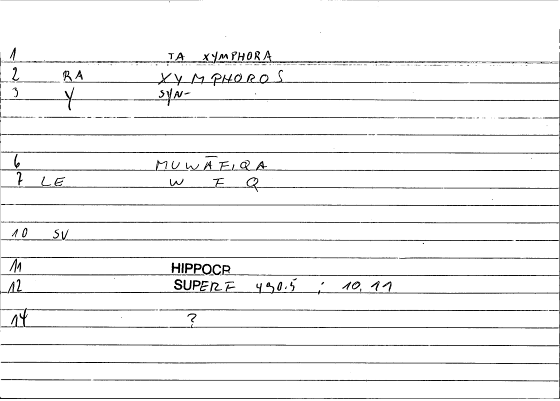 1 TA XYMPHORA
2 RA XYMPHOROS
3 Y SYN-
6 MUWĀFIQA
7 LE W F Q
10 SV
11 HIPPOCR
12 SUPERF 490.5 ; 10,11
14 ?